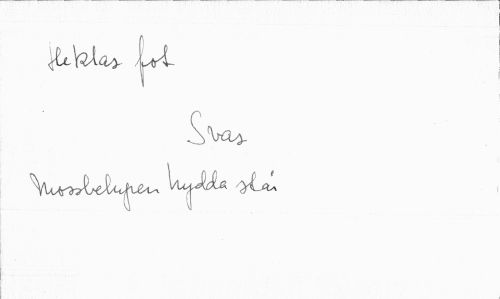 Heklas fot
Svar
Mossbelupen hydda står